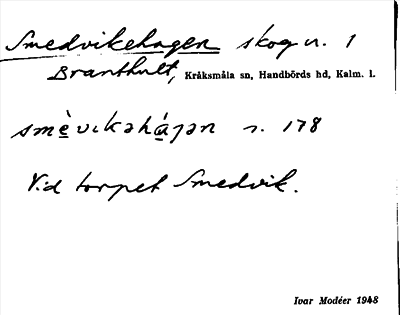 Smedvikehagen skog n. 1
Branthult, Kråksmåla sn, Handbörds hd, Kalm. l.
smèvikəháɡən s. 178
Vid torpet Smedvik.
Ivar Modéer 1948